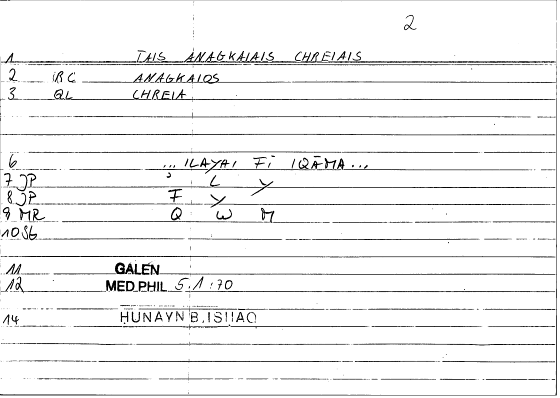 2
1 TAIS ANAGKAIAIS CHREIAIS
2 RC ANAGKAIOS
3 QL CHREIA
6 ... ILAYAI FĪ IQĀMA...
7 JP ʾ L Y
8 JP F Y
9 MR Q W M
10 S6
11 GALEN
12 MED.PHIL 5.1:70
14 HUNAYN B. ISHAQ